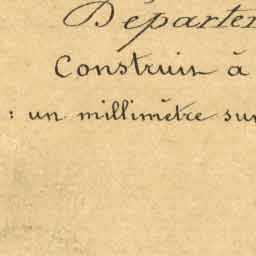 Départe
Construit à
: un millimètre sur